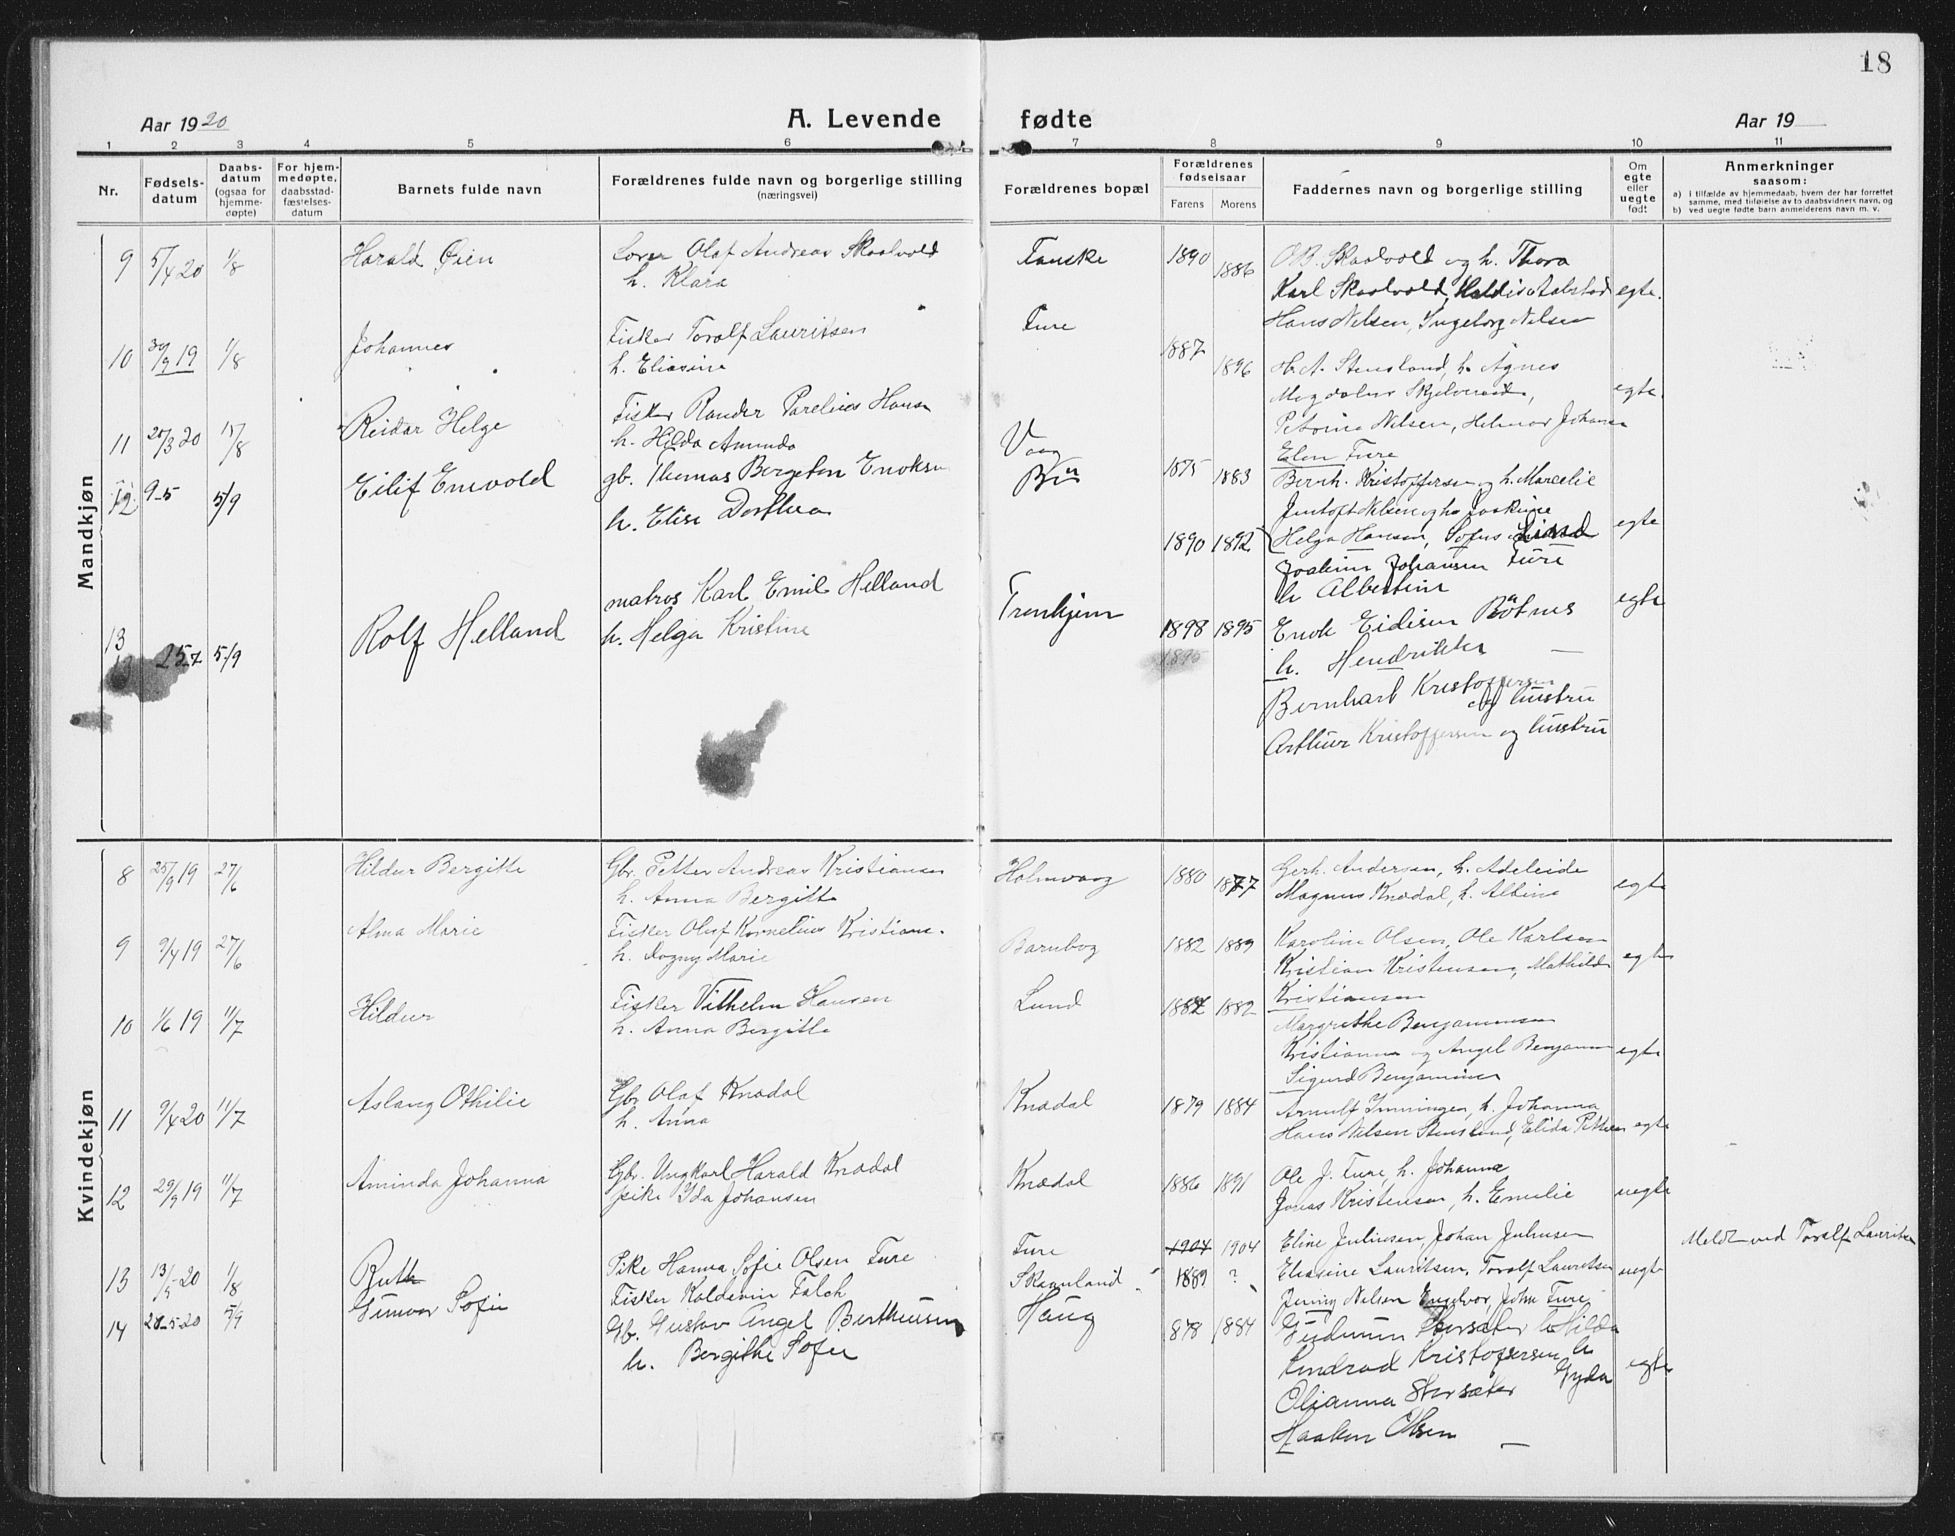 18
Aar 1920
A. Levende fødte
Aar 19
1 2 3 4 5 6 7 8 9 10 11
Nr.
Fødsels-
datum
Daabs-
datum
(ogsaa for
hjemme-
døpte)
For hjem-
medøpte,
daabsstad-
fæstelses-
datum
Barnets fulde navn
Forældrenes fulde navn og borgerlige stilling
(næringsvei)
Forældrenes bopæl
Forældrenes
fødselsaar
Farens Morens
Faddernes navn og borgerlige stilling
Om
egte
eller
uegte
født
Anmerkninger
saasom:
a) i tilfælde av hjemmedaab, hvem der har forrettet
samme, med tilføielse av to daabsvidners navn, og
b) ved uegte fødte barn anmelderens navn m. v.
Mandkjøn
9 5/4 20 1/8 Harald Øien
Olaf Andreas Skaalvold
h. Klara
Fauske 1890 1886
O.B. Skaalvold og h. Thora
Karl Skaalvold, Aabstad egte.
Hans Nelsen, Ingeborg Nelsen
10 30/9 19 1/8 Johannes
Fisker Toralf Lauritsen
h. Eliasine
Fure 1887 1896
H. A. Stensland, h. Agnes
Magdalene
Petrine Nelsen, Helmer Johansen
Elen Fure
egte.
11 20/3 20 15/8 Reidar Helge
Fisker Rander Parelius Hansen
h. Hilda Amunda
Vaag 1875 1883
Bernh. Kristoffersen og h. Marselie
Jentoft Nelsen og h.
Helga Hansen, Sofus
egte
12 9-5 5/9 Eilif Enevold
gb. Thomas Bergeton Enoksen
h. Elise Dorthea
1890 1892
Joakim Johansen Fure
h Albertine
Enok Eidisen Bøtnes
h. Hendrikke
egte
13
13 25-7 5/9 Rolf Helland
matros Karl Emil Helland
h. Helga Kristine
Tronhjem 1898 1895
1895
Bernhart Kristoffersen
og hustru
Arthur Kristoffersen og hustru
Kvindekjøn
8 25/9 19 27/6 Hildur Bergitte
Gbr. Petter Andreas Kristiansen
h. Anna Bergitte
Holmvaag 1880 1877
Gerh. Andersen, h. Adeleide
Magnus Knædal, h. Albine
egte
9 9/4 19 27/6 Alma Marie
Fisker Olaf Kornelius Kristians.
h. Dagny Marie
Barnbog 1882 1889
Karoline Olsen, Ole Karlsen
Kristian Kristensen, Mathilde
Kristiansen
egte
10 1/6 19 11/7 Hildur
Fisker Vilhelm Hansen
h. Anna Bergitte
Lund 1882
Margrethe Benjaminsen
Kristianna og Angel Benjamin
Sigurd Benjaminsen
egte
11 9/4 20 11/7 Aslaug Othilie
Gbr Olaf Knædal
h. Anna
Knædal 1879 1884
Arnulf Inningen, h. Johanna
Hans Nelsen Stensland, Elida Pettersen
egte
12 29/9 19 11/7 Aminda Johanna
Gbr. Ungkarl Harald Knædal
pike Ida Johansen
Knædal 1886 1891
Ole J. Fure, h. Johanna
Jonas Kristensen, h. Emelie
uegte
13 13/5 20 1/8 Ruth
Pike Hanna Sofie Olsen Fure
Fisker Koldevin Falch
Fure
Skavnland
1904 1904
1889 ?
Eline Juliusen, Johan Juliusen
Eliasine Lauritsen, Toralf Lauritsen
Jenny Nelsen Engelvær, John Fure
uegte
Meldt ved Toralf Lauritsen
14 28-5-20 5/9 Gunvor Sofie
Gb. Gustav Angel Bertheusen
h. Bergithe Sofie
Haug 878 1884
Gudmun Storsæter h Hilda
Kondrad Kristoffersen, h
Gyda
Olianna Storsæter
Haakon Olsen
egte